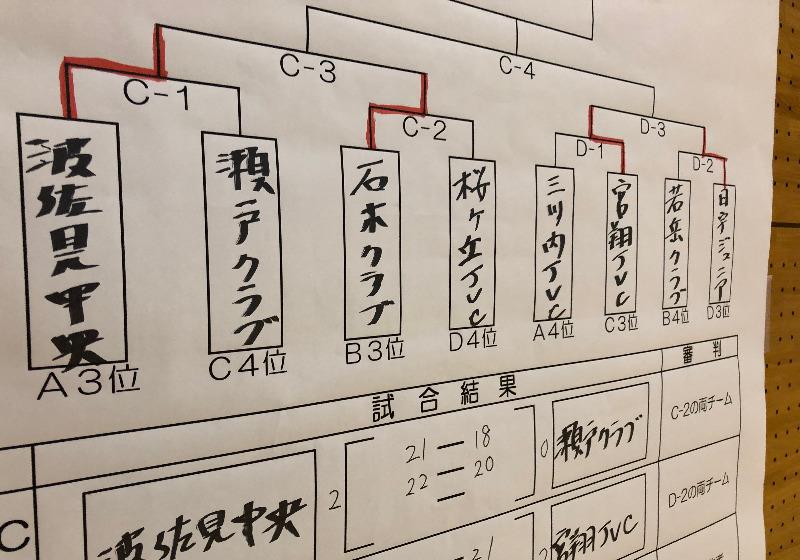 C-3
C-4
C-1
C-2
D-1
D-3
D-2
波佐見中央
瀬戸クラブ
石木クラブ
桜ヶ丘JVC
三川内JVC
宮翔JVC
若岳クラブ
日宇ジュニア
A3位
C4位
B3位
D4位
A4位
C3位
B4位
D3位
試合結果
審判
波佐見中央
2
21 — 18
22 — 20
—
0
瀬戸クラブ
C-2の両チーム
C
宮翔JVC
D-2の両チーム